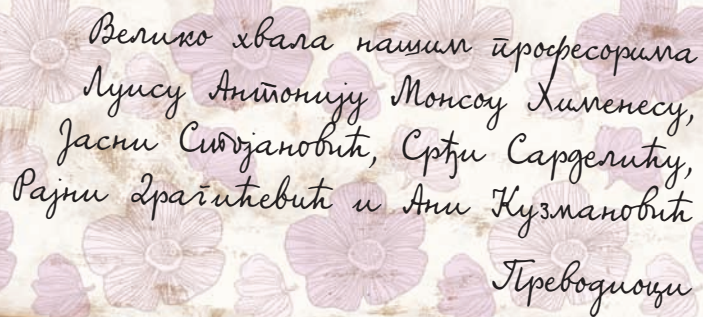 Велико хвала нашим професорима
Луису Антонију Монсоу Хименесу,
Јасни Стојановић, Срђи Сарделићу,
Рајни Драгићевић и Ани Кузмановић
Преводиоци